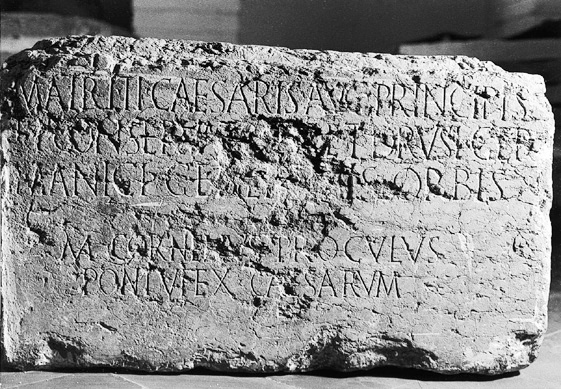 MATRI TI CAESARIS AVG PRINCIPIS
ET CONSER ET DRVSI GER
MANICI ORBIS
M CORNELIVS PROCVLVS
PONTVFEX CAESARVM